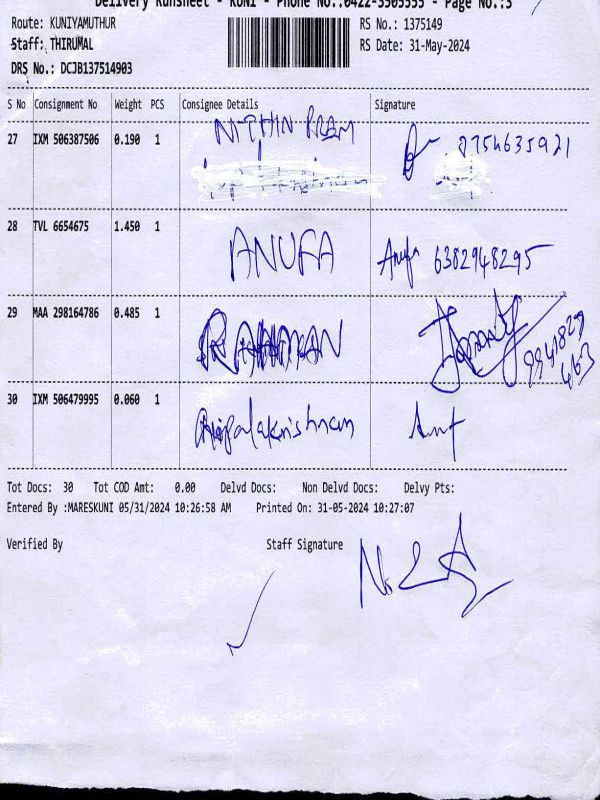 Delivery Runsheet - KUNI - Phone No.:0422-3505555 - Page No.:3
Route: KUNIYAMUTHUR
RS No.: 1375149
Staff: THIRUMAL
RS Date: 31-May-2024
DRS No.: DCJB137514903
S No Consignment No Weight PCS Consignee Details Signature
27 IXM 506387506 0.190 1 NITHIN PREM 8754635921
28 TVL 6654675 1.450 1 ANUFA Anufa 6382948295
29 MAA 298164786 0.485 1 RAHMAN 9941829
463
30 IXM 506479995 0.060 1
Tot Docs: 30 Tot COD Amt: 0.00 Delvd Docs: Non Delvd Docs: Delvy Pts:
Entered By :MARESKUNI 05/31/2024 10:26:58 AM Printed On: 31-05-2024 10:27:07
Verified By Staff Signature